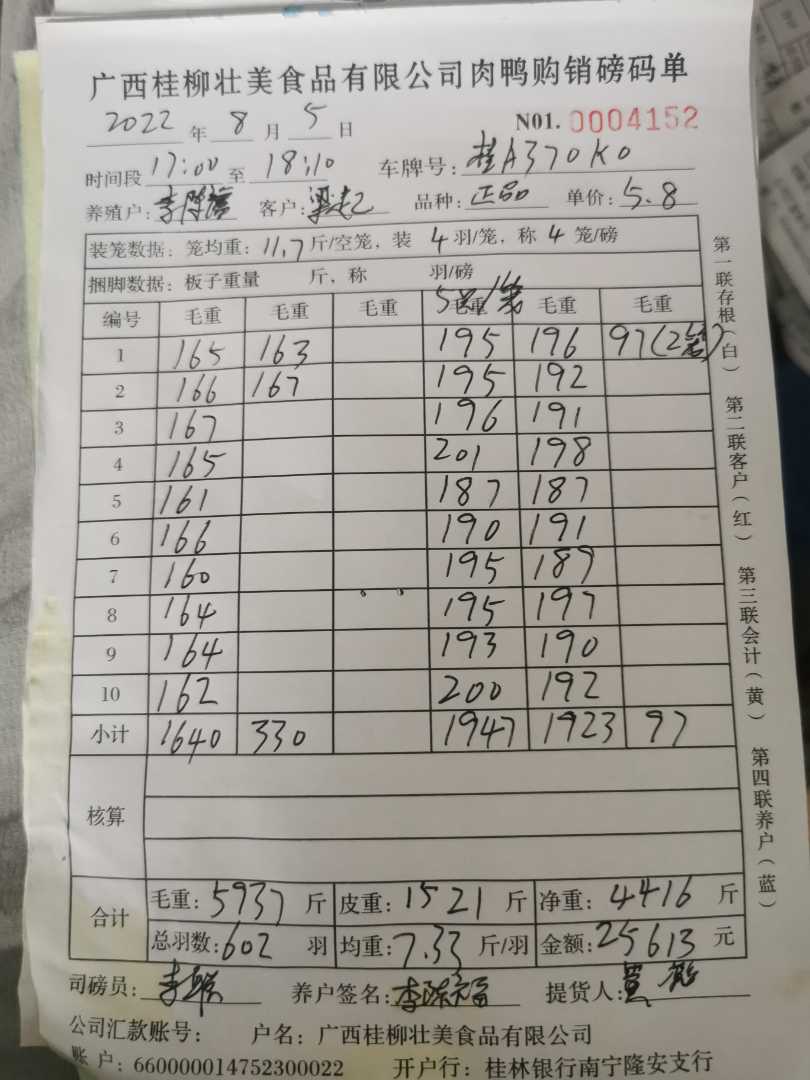 广西桂柳壮美食品有限公司肉鸭购销磅码单
2022 年 8 月 5 日 N01. 0004152
时间段 17:00 至 18:10 车牌号: 桂A370K0
养殖户: 李陈福 客户: 品种: 正品 单价: 5.8
装笼数据: 笼均重: 11.7 斤/空笼, 装 4 羽/笼, 称 4 笼/磅
捆脚数据: 板子重量 斤, 称 羽/磅
5只/笼
编号 毛重 毛重 毛重 毛重 毛重 毛重
1 165 163 195 196 97(2笼)
2 166 167 195 192
3 167 196 191
4 165 201 198
5 161 187 187
6 166 190 191
7 160 195 189
8 164 195 197
9 164 193 190
10 162 200 192
小计 1640 330 1947 1923 97
核算
合计 毛重: 5937 斤 皮重: 1521 斤 净重: 4416 斤
总羽数: 602 羽 均重: 7.33 斤/羽 金额: 25613 元
司磅员: 养户签名: 李陈福 提货人:
公司汇款账号: 户名: 广西桂柳壮美食品有限公司
账户: 660000014752300022 开户行: 桂林银行南宁隆安支行
第一联存根(白) 第二联客户(红) 第三联会计(黄) 第四联养户(蓝)